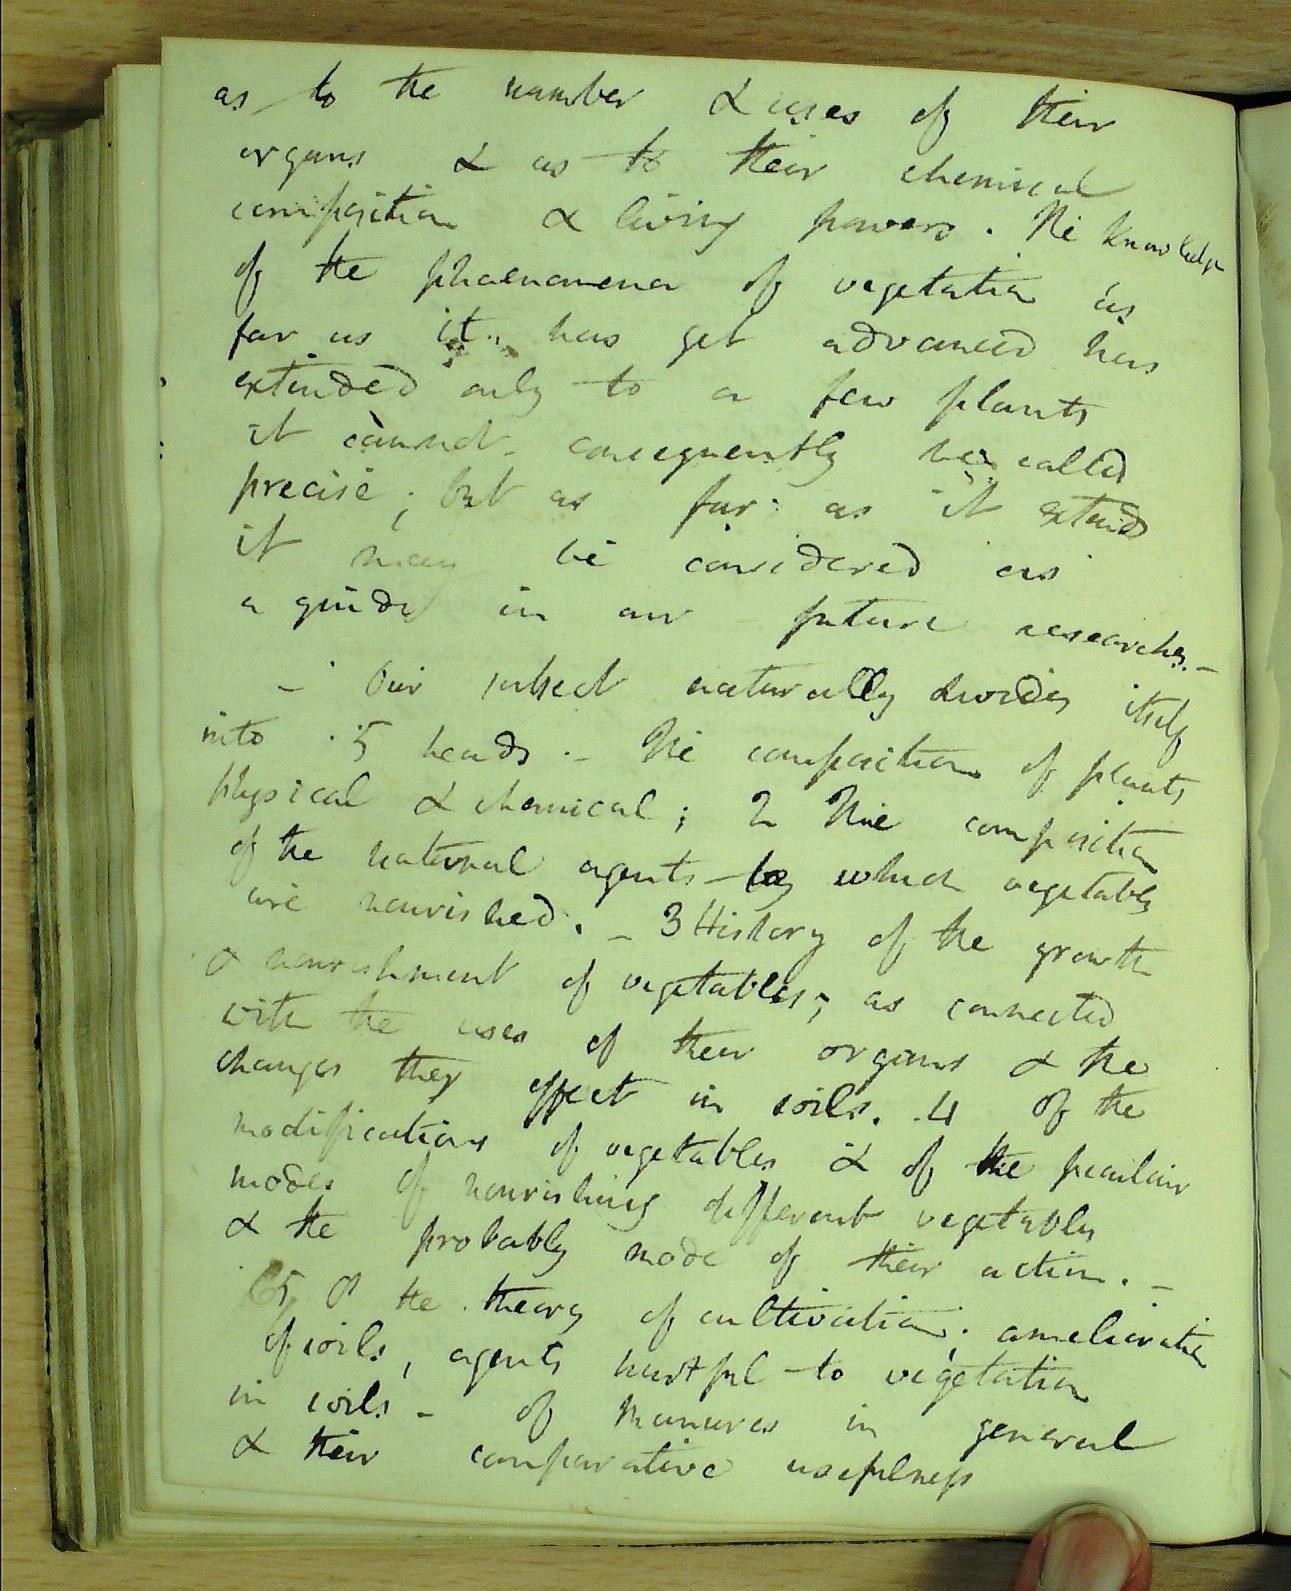 as to the number & uses of their
organs & as to their chemical
composition & living powers. The knowledge
of the phaenomena of vegetation as
far as it has yet advanced has
extended only to a few plants
it cannot consequently be called
precise; but as far as it extends
it may be considered as
a guide in our future researches. -
- Our subject naturally divides itself
into 5 heads. - The composition of plants
physical & chemical; 2 The composition
of the natural agents by which vegetables
are nourished. - 3 History of the growth
& nourishment of vegetables; as connected
with the uses of their organs & the
changes they effect in soils. 4 Of the
modifications of vegetables & of the peculiar
modes of nourishing different vegetables
& the probably mode of their action. -
5 Of the theory of cultivation; amelioration
of soils, agents hurtful to vegetation
in soils - of manures in general
& their comparative usefulness